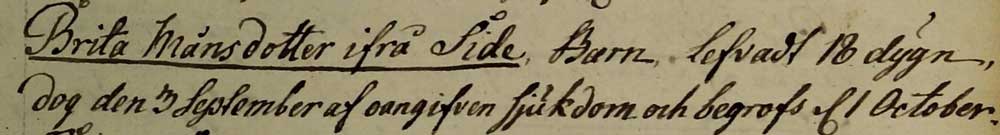 Brita Månsdotter ifrå Side, Barn, lefvadt 18 dygn,
dog den 3 September af oangifven sjukdom och begrofs d. 1 October.